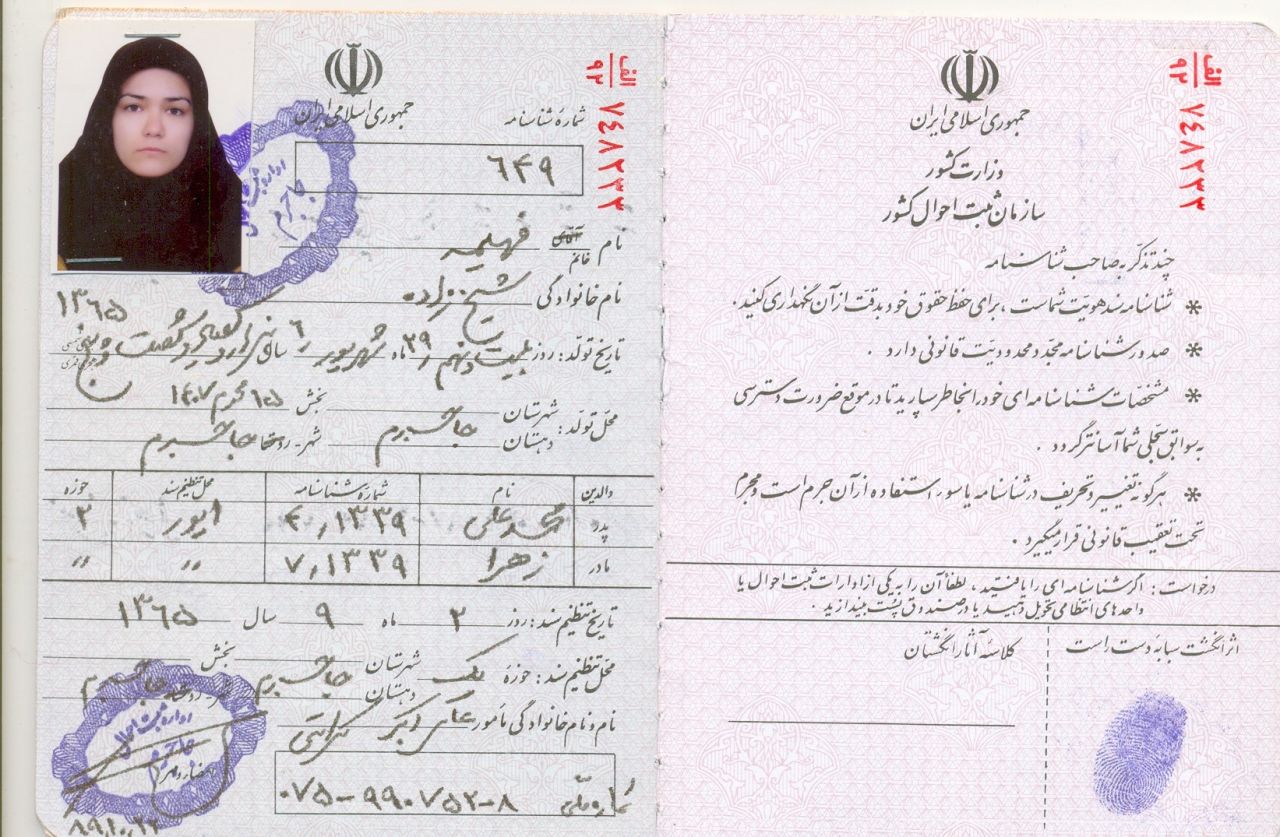 الف
۹۲
۷۴۸۲۳۳
جمهوری اسلامی ایران
وزارت کشور
سازمان ثبت احوال کشور
چند تذکر به صاحب شناسنامه
* شناسنامه سند هویت شماست ، برای حفظ حقوق خود بدقت از آن نگهداری کنید .
* صدور شناسنامه مجدد محدودیت قانونی دارد .
* مشخصات شناسنامه ای خود را بخاطر سپارید تا در موقع ضرورت دسترسی
به سوابق سجلی شما آسانتر گردد .
* هرگونه تغییر و تحریف در شناسنامه یا سوء استفاده از آن جرم است و مجرم
تحت تعقیب قانونی قرار میگیرد .
درخواست : اگر شناسنامه ای را یافتید ، لطفاً آن را به یکی از ادارات ثبت احوال یا
واحدهای انتظامی تحویل دهید یا در صندوق پست بیندازید .
اثر انگشت سبابه دست راست
کلاسه آثار انگشتان
الف
۹۲
۷۴۸۲۳۳
جمهوری اسلامی ایران
شماره شناسنامه
۶۴۹
نام آقای خانم فهیمه
نام خانوادگی شیخ زاده
۱۳۶۵
تاریخ تولد : روز بیست و نهم ۲۹ ماه شهریور ۶ سال یکهزار و سیصد و شصت و پنج
۱۵ محرم ۱۴۰۷
محل تولد : شهرستان جاجرم بخش
دهستان شهر - روستا جاجرم
والدین نام شماره شناسنامه محل تنظیم سند حوزه
پدر محمدعلی ۴,۱۳۳۹ ایور ۲
مادر زهرا ۷,۱۳۳۹ 〃 〃
تاریخ تنظیم سند : روز ۲ ماه ۹ سال ۱۳۶۵
محل تنظیم سند : حوزه یک شهرستان جاجرم بخش
دهستان شهر - روستا جاجرم
نام و نام خانوادگی مأمور علی اکبر
شماره ملی ۰۷۵-۹۹۰۷۵۲-۸
اداره ثبت احوال
جاجرم